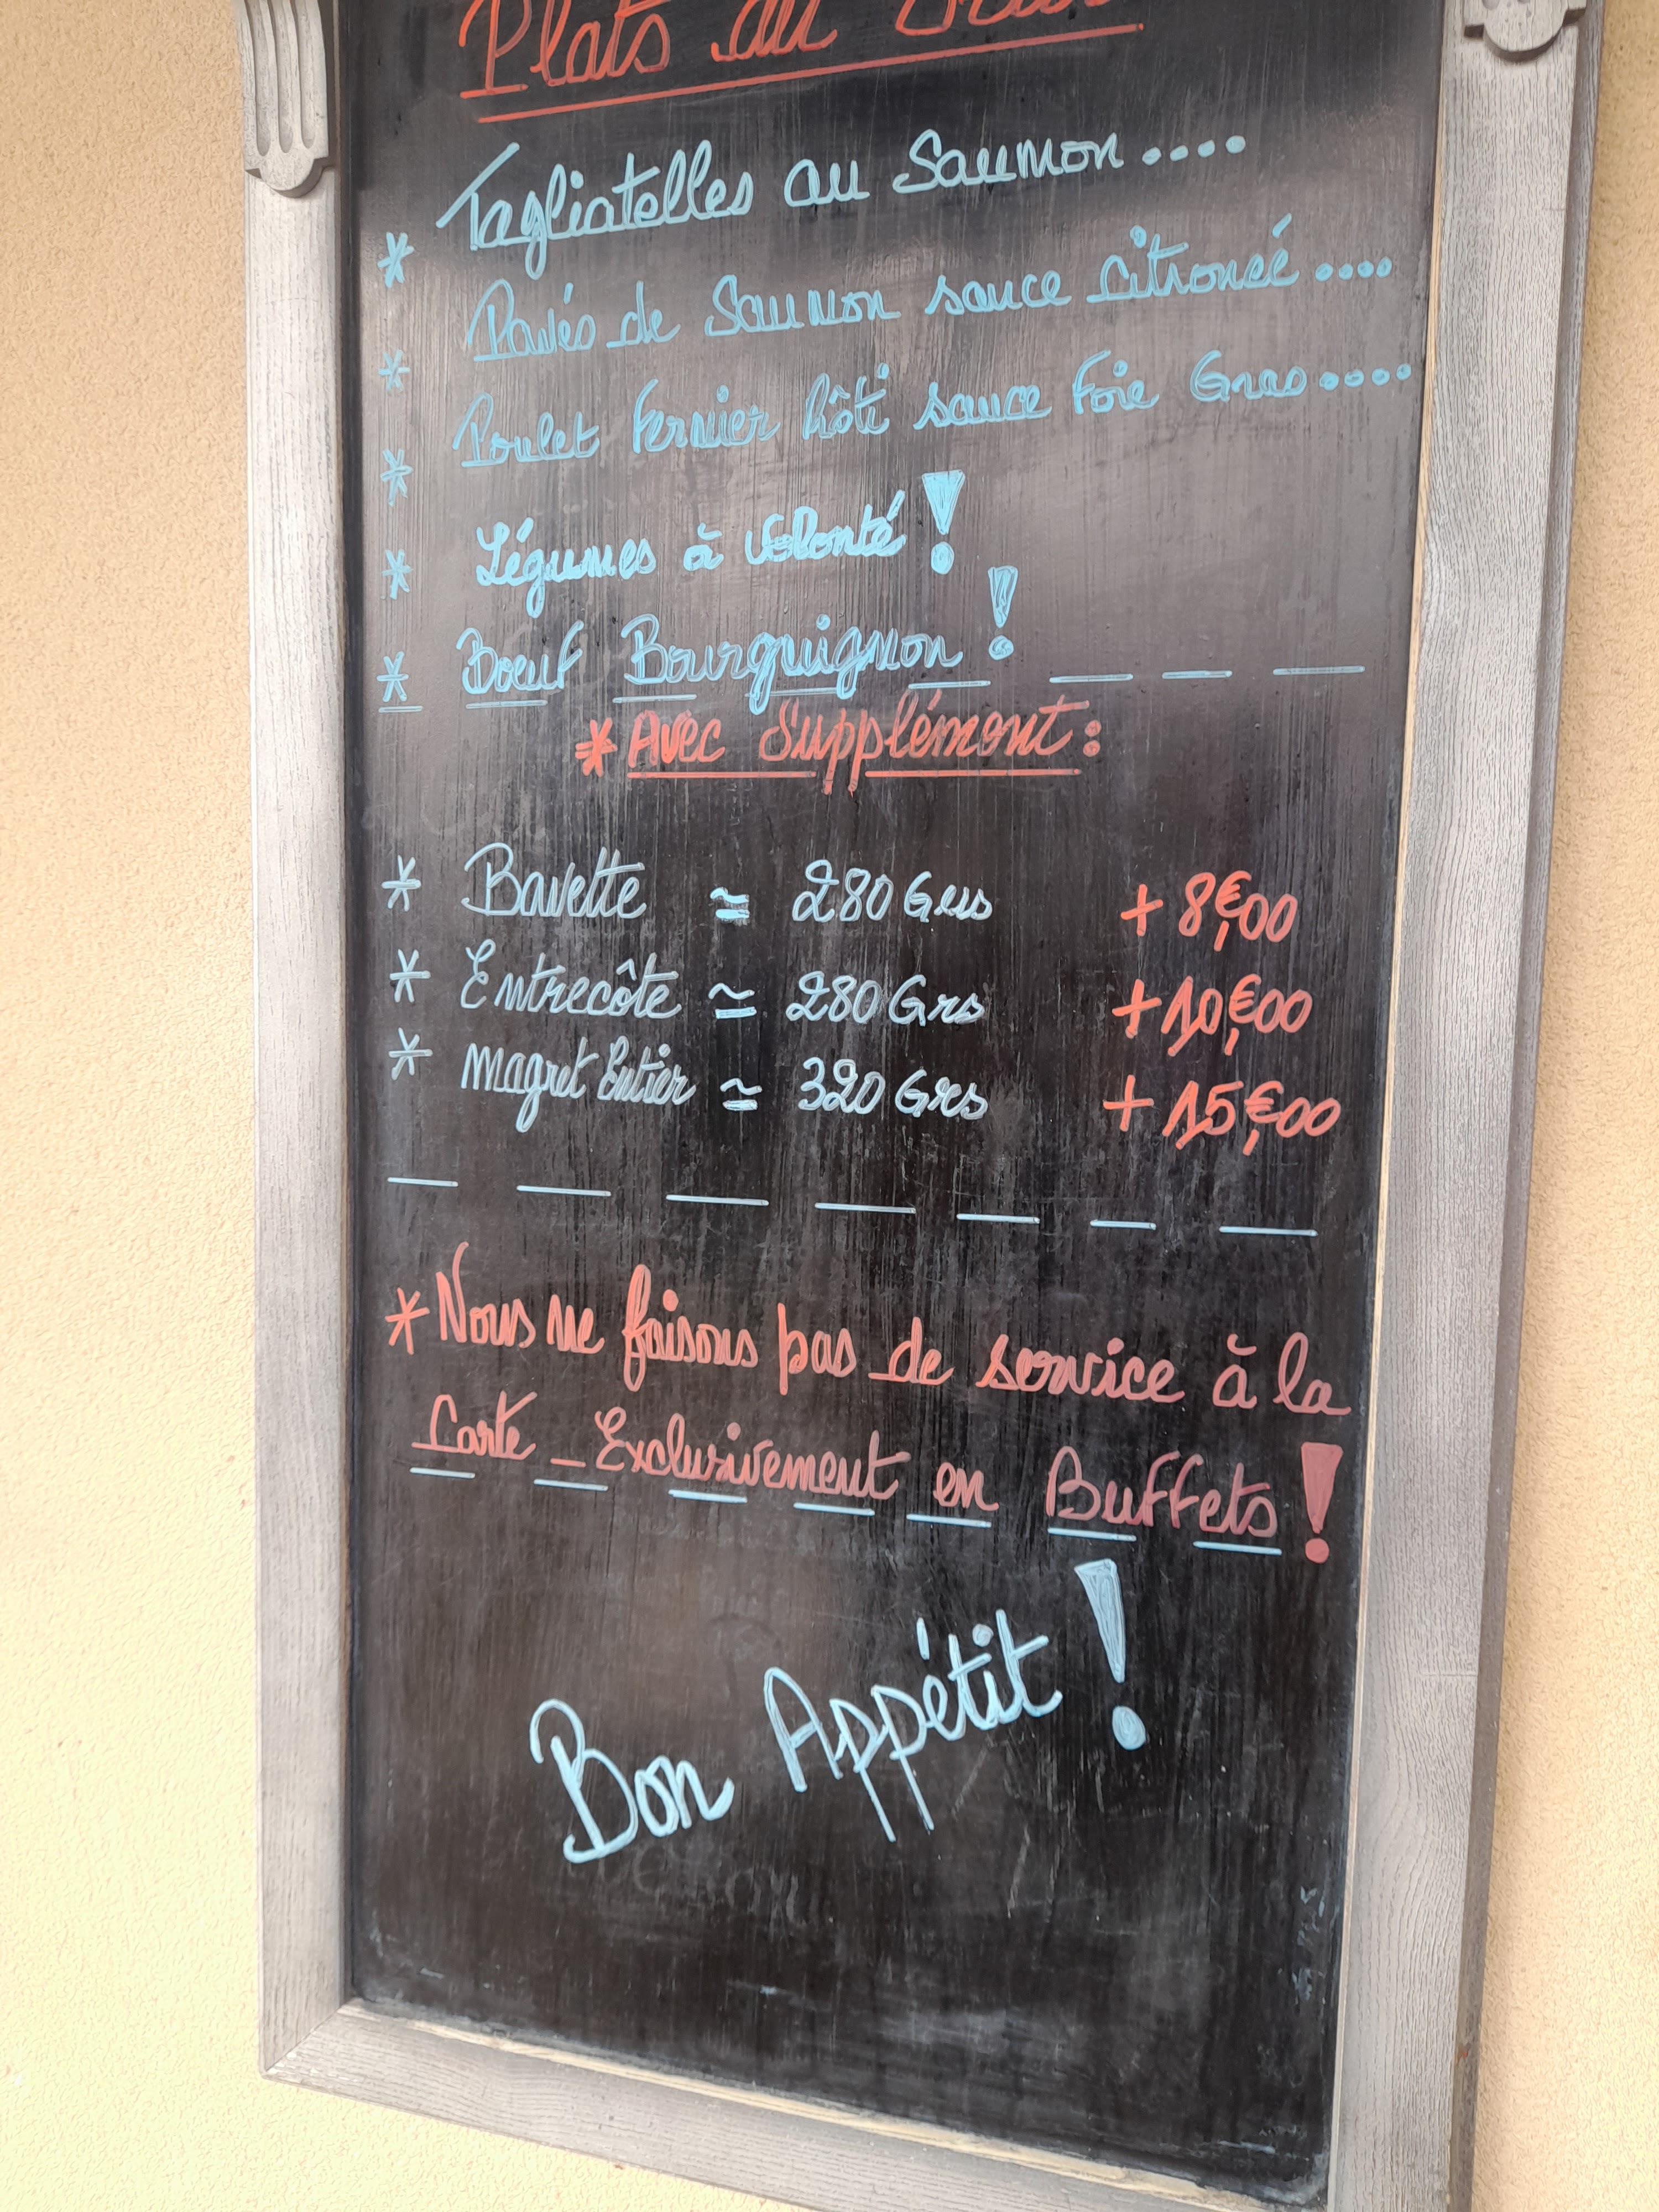 Plats du Jour
* Tagliatelles au Saumon....
* Pavés de Saumon sauce citroneé....
* Poulet Fermier Rôti sauce Foie Gras....
* Légumes à volonté !
* Boeuf Bourguignon !
* Avec Supplément :
* Bavette ≃ 280 Grs + 8€,00
* Entrecôte ≃ 280 Grs + 10€,00
* Magret Entier ≃ 320 Grs + 15€,00
* Nous ne faisons pas de service à la
Carte _ Exclusivement en Buffets !
Bon Appétit !